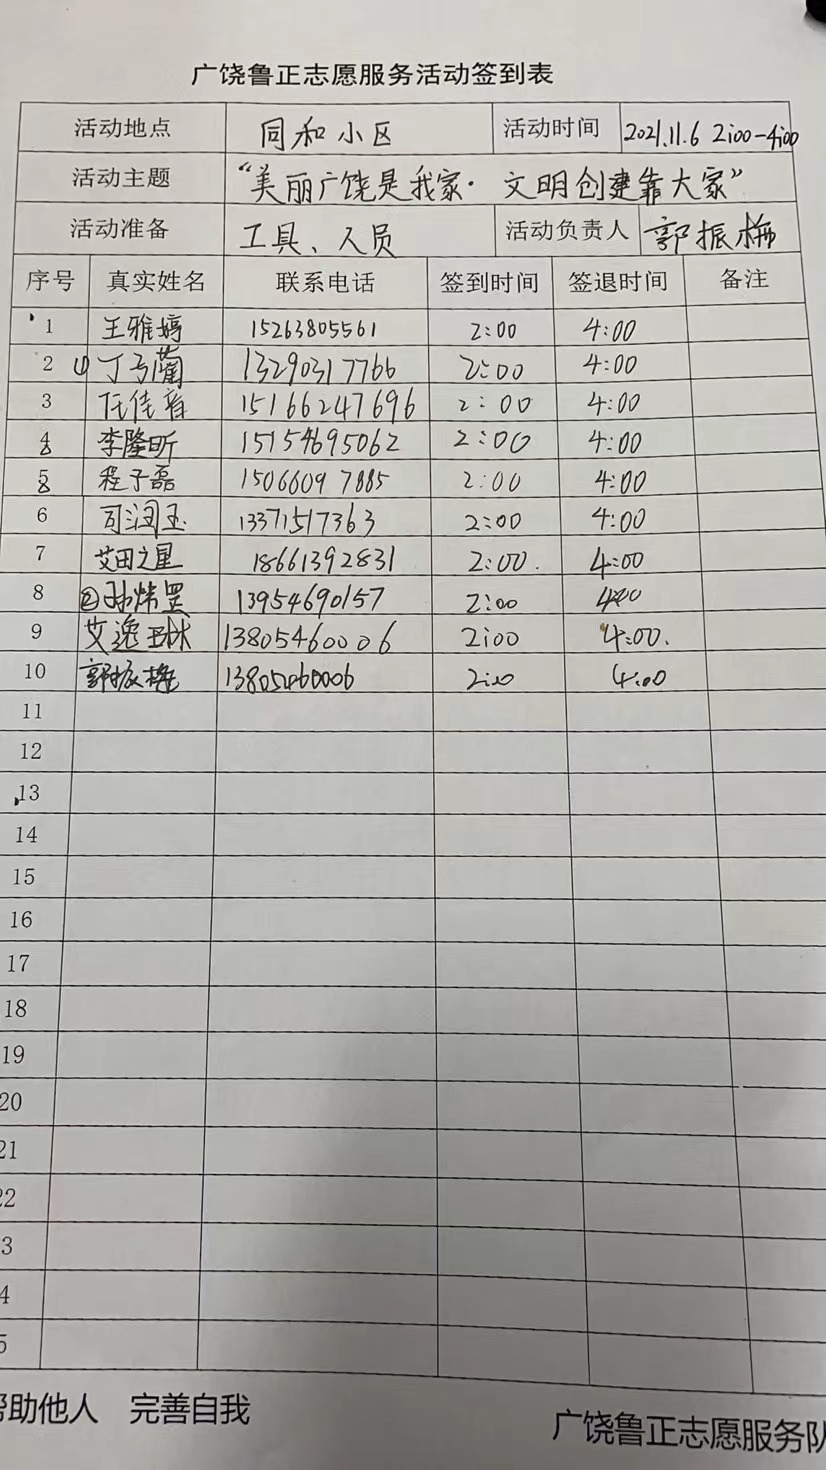 广饶鲁正志愿服务活动签到表
活动地点 同和小区 活动时间 2021.11.6 2:00-4:00
活动主题 “美丽广饶是我家·文明创建靠大家”
活动准备 工具、人员 活动负责人 郭振梅
序号 真实姓名 联系电话 签到时间 签退时间 备注
1 王雅婷 15263805561 2:00 4:00
2 ① 丁 13290317766 2:00 4:00
3 任佳睿 15166247696 2:00 4:00
4 李隆昕 15154695062 2:00 4:00
5 程子磊 15066097885 2:00 4:00
6 司润玉 13371517363 2:00 4:00
7 艾田之星 18661392831 2:00. 4:00
8 ② 孙炜罡 13954690157 2:00 4:00
9 艾逸琳 13805460006 2:00 4:00.
10 郭振梅 13805460006 2:00 4:00
11
12
13
14
15
16
17
18
19
20
21
22
3
4
5
帮助他人 完善自我
广饶鲁正志愿服务队